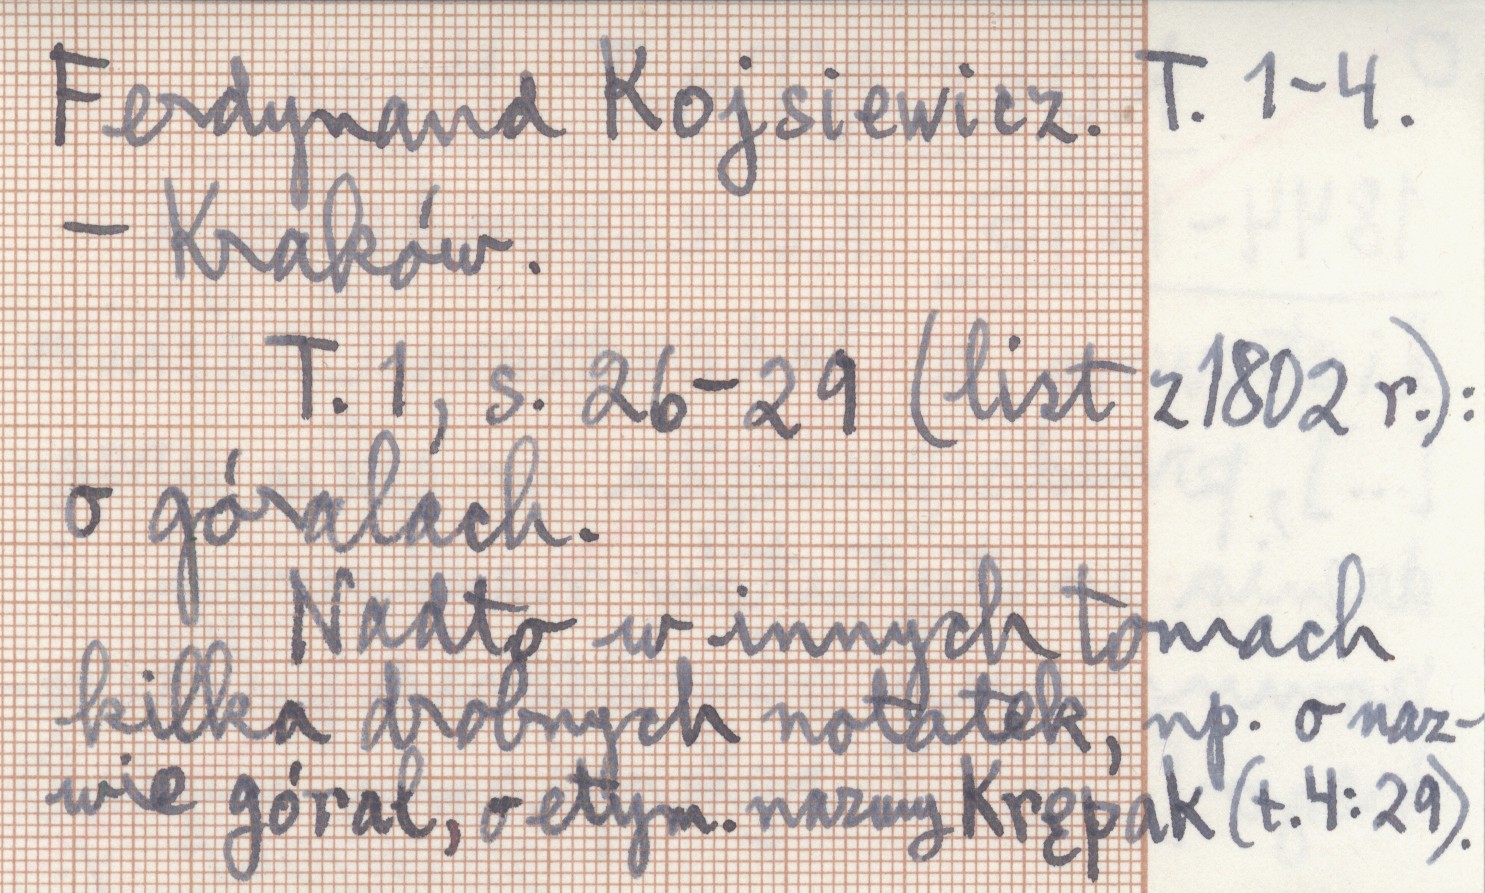 Ferdynand Kojsiewicz. T. 1-4.
- Kraków.
T. 1, s. 26-29 (list z 1802 r.):
o góralach.
Nadto w innych tomach
kilka drobnych notatek, np. o naz-
wie góral, o etym. nazwy Krępak (t. 4: 29).